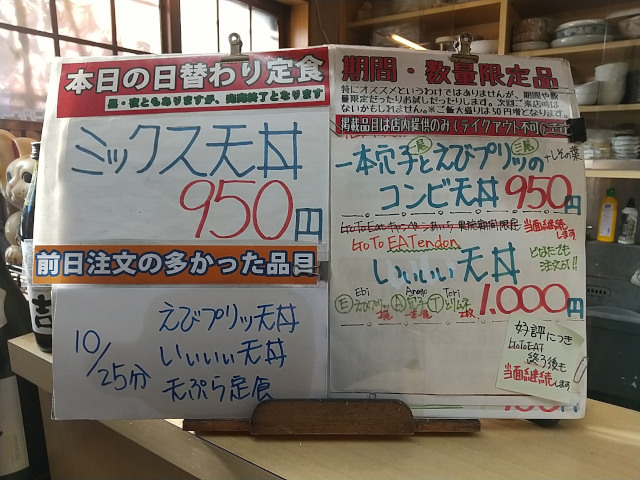 本日の日替わり定食
昼・夜ともありますが、完売終了となります
ミックス天丼
950円
前日注文の多かった品目
10/25分
えびプリッツ天丼
いいいい天丼
天ぷら定食
期間・数量限定品
特にオススメというわけではありませんが、期間や数
量限定だったりお試しだったりします。次回ご来店時は
ないかもしれません。※ご飯大盛りは50円増となります。
掲載品目は店内提供のみ(テイクアウト不可)
一本穴子とえびプリッツの
一尾 三尾
+しその葉
コンビ天丼 950円
GoToEatキャンペーンあいち 実施期間限定 当面継続します
GoTo EATendon
いいいい天丼
どなたでも注文可!!
Ebi Anago Tori
1.000円
好評につき
GoToEAT
終了後も
当面継続します